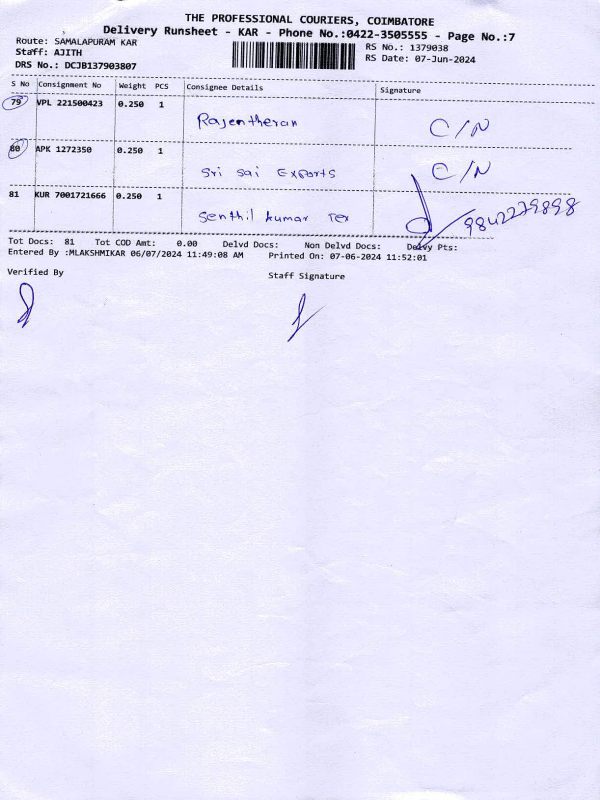 THE PROFESSIONAL COURIERS, COIMBATORE
Delivery Runsheet - KAR - Phone No.:0422-3505555 - Page No.:7
Route: SAMALAPURAM KAR
Staff: AJITH
DRS No.: DCJB137903807
RS No.: 1379038
RS Date: 07-Jun-2024
S No Consignment No Weight PCS Consignee Details Signature
79 VPL 221500423 0.250 1 Rajentheran C/N
80 APK 1272350 0.250 1 Sri Sai Exports C/N
81 KUR 7001721666 0.250 1 Senthil kumar Tex 9842279898
Tot Docs: 81 Tot COD Amt: 0.00 Delvd Docs: Non Delvd Docs: Delvy Pts:
Entered By :MLAKSHMIKAR 06/07/2024 11:49:08 AM Printed On: 07-06-2024 11:52:01
Verified By Staff Signature